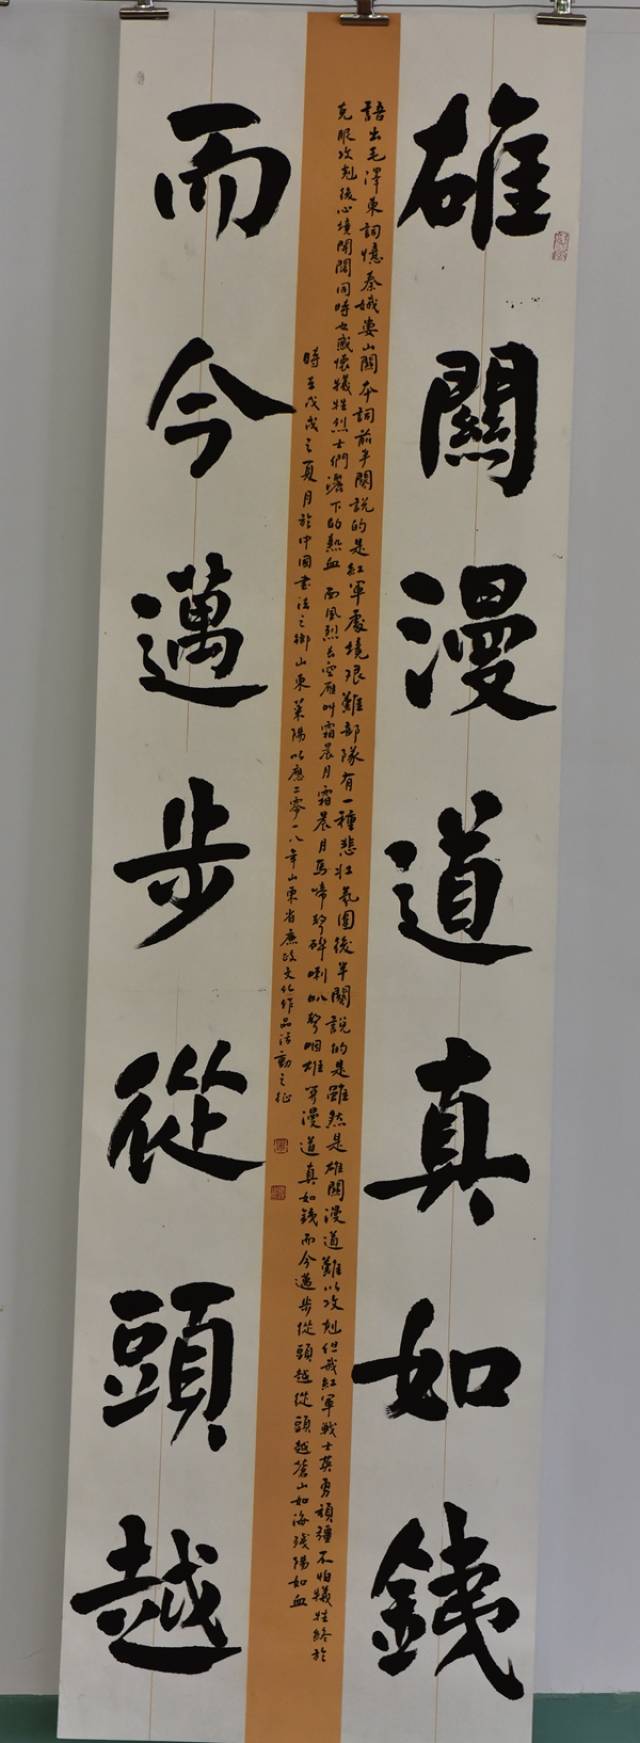 雄關漫道真如鐵
而今邁步從頭越
語出毛澤東詞憶秦娥婁山關本詞前半闋說的是紅軍處境艱難部隊有一種悲壯氛圍後半闋說的是雖然是雄關漫道難以攻剋但我紅軍戰士英勇頑強不怕犧牲終於
克服攻剋後心境開闊同時也感懷犧牲烈士們灑下的熱血西風烈長空雁叫霜晨月霜晨月馬啼聲碎喇叭聲咽雄關漫道真如鐵而今邁步從頭越從頭越蒼山如海殘陽如血
時在戊戌之夏月於中國書法之鄉山東萊陽以應二零一八年山東省廉政文化作品活動之征